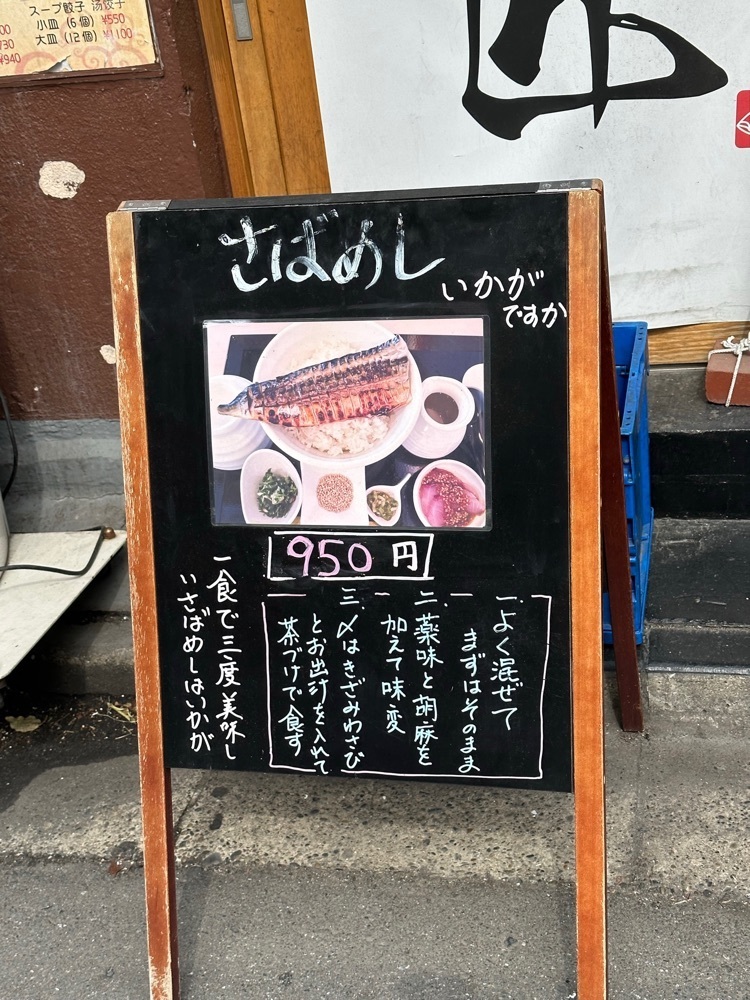 スープ餃子 湯餃子
小皿 (6個) ¥550
大皿 (12個) ¥1100
¥940
さばめし
いかが
ですか
950円
一、よく混ぜて
まずはそのまま
二、薬味と胡麻を
加えて味変
三、〆はきざみわさび
とお出汁を入れて
茶づけで食す
一食で三度美味し
いさばめしはいかが